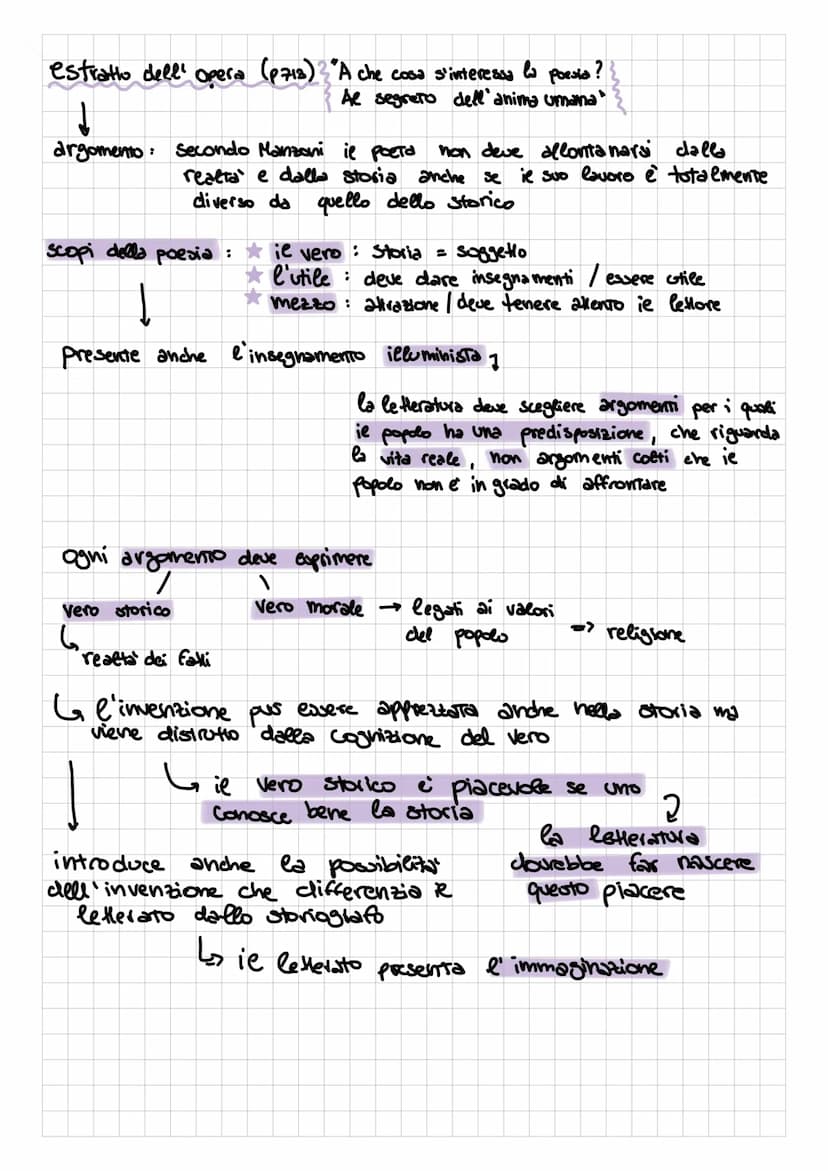 estratto dell' opera (p713) "A che cosa s'interessa la poesia?
Al segreto dell'anima umana"
argomento: secondo Manzoni il poeta non deve allontanarsi dalla
realtà e dalla storia anche se il suo lavoro è totalmente
diverso da quello dello storico
scopi della poesia: ★ il vero: storia = soggetto
★ l'utile: deve dare insegnamenti / essere utile
★ mezzo: attrazione / deve tenere attento il lettore
presente anche l'insegnamento illuminista
la letteratura deve scegliere argomenti per i quali
il popolo ha una predisposizione, che riguarda
la vita reale, non argomenti colti che il
popolo non è in grado di affrontare
ogni argomento deve esprimere
vero storico vero morale → legati ai valori
del popolo => religione
realtà dei fatti
l'invenzione può essere apprezzata anche nella storia ma
viene distrutto dalla cognizione del vero
il vero storico è piacevole se uno
conosce bene la storia
la letteratura
dovrebbe far nascere
questo piacere
introduce anche la possibilità
dell'invenzione che differenzia il
letterato dallo storiografo
il letterato presenta l'immaginazione